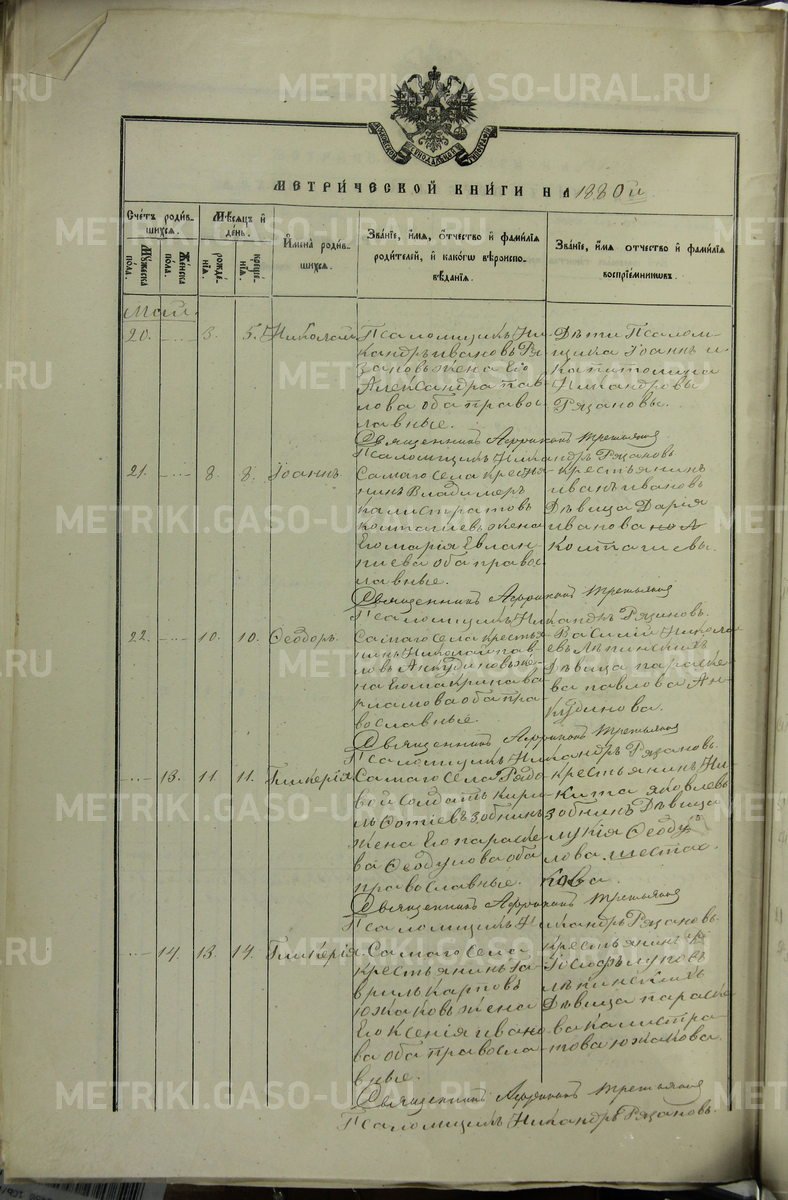 METRIKI.GASO-URAL.RU
МЕТРИ́ЧЕСКОЙ КНИ́ГИ НА 1880й
Сче́тъ роди́в-
шихся.
Мꙋ́жеска
пола.
Же́нска
пола.
Мѣ́сяцъ и҆
де́нь.
рожде́-
нїѧ.
креще́-
нїѧ.
И҆мена̀ роди́в-
шихся.
Зва́нїе, и҆́мѧ, ѻ҆́тчество и҆ фами́лїѧ
роди́телей, и҆ како́гѡ вѣроиспо-
вѣ́данїѧ.
Зва́нїе, и҆́мѧ ѻ҆́тчество и҆ фами́лїѧ
воспрїе́мниковъ.
Май.
20. 3. 5. Николай
Псаломщикъ Ни-
кандръ Ивановъ Ря-
зановъ жена Его
Александра Пав-
лова оба правос-
лавные.
Дѣти Псалом-
щика Іоаннъ и
Капитолина
Никандровы
Рязановы.
Священникъ Африканъ Третьяковъ
Псаломщикъ Никандръ Рязановъ
21. 8. 8. Іоаннъ
Самаго села крестья-
нинъ Владимеръ
Калистратовъ
жена
Его Марія Евлам-
піева оба правос-
лавные.
крестьянинъ
Иванъ Ивановъ
Дѣвица Дарія
Иванова
Священникъ Африканъ Третьяковъ
Псаломщикъ Никандръ Рязановъ.
22. 10. 10. Ѳеодоръ
Самаго села крестья-
нинъ Николай Пав-
ловъ Анкудиновъ же-
на Его Макрина Ва-
оба пра-
вославные.
Василій Никола-
евъ Лѣпинскихъ
Дѣвица Параске-
ва Павлова Ан-
кудинова.
Священникъ Африканъ Третьяковъ
Псаломщикъ Никандръ Рязановъ.
13. 11. 11. Гликерія
Самаго села Рядо-
вой Солдатъ Кири-
лъ Фотіевъ Зобнинъ
жена Его Параске-
ва Ѳеодулова оба
православные.
крестьянинъ Ни-
кита Яковлевъ
Зобнинъ Дѣвица
Лукія Ѳеоду-
лова Шеста-
кова.
Священникъ Африканъ Третьяковъ
Псаломщикъ Никандръ Рязановъ.
14. 13. 14. Гликерія
Самаго села
крестьянинъ Га-
врилъ Карповъ
Южаковъ жена
Его Ксенія Ивано-
ва оба правосла-
вные.
крестьянинъ
Іосифъ Луповъ
Лѣпинскихъ
Дѣвица Параске-
ва Калистра-
това Южакова.
Священникъ Африканъ Третьяковъ
Псаломщикъ Никандръ Рязановъ.